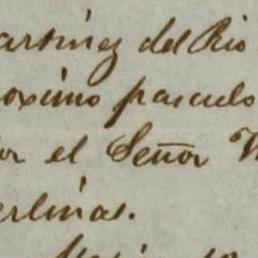 artinez del Rio
oximo pasado
or el Señor
erlinas.